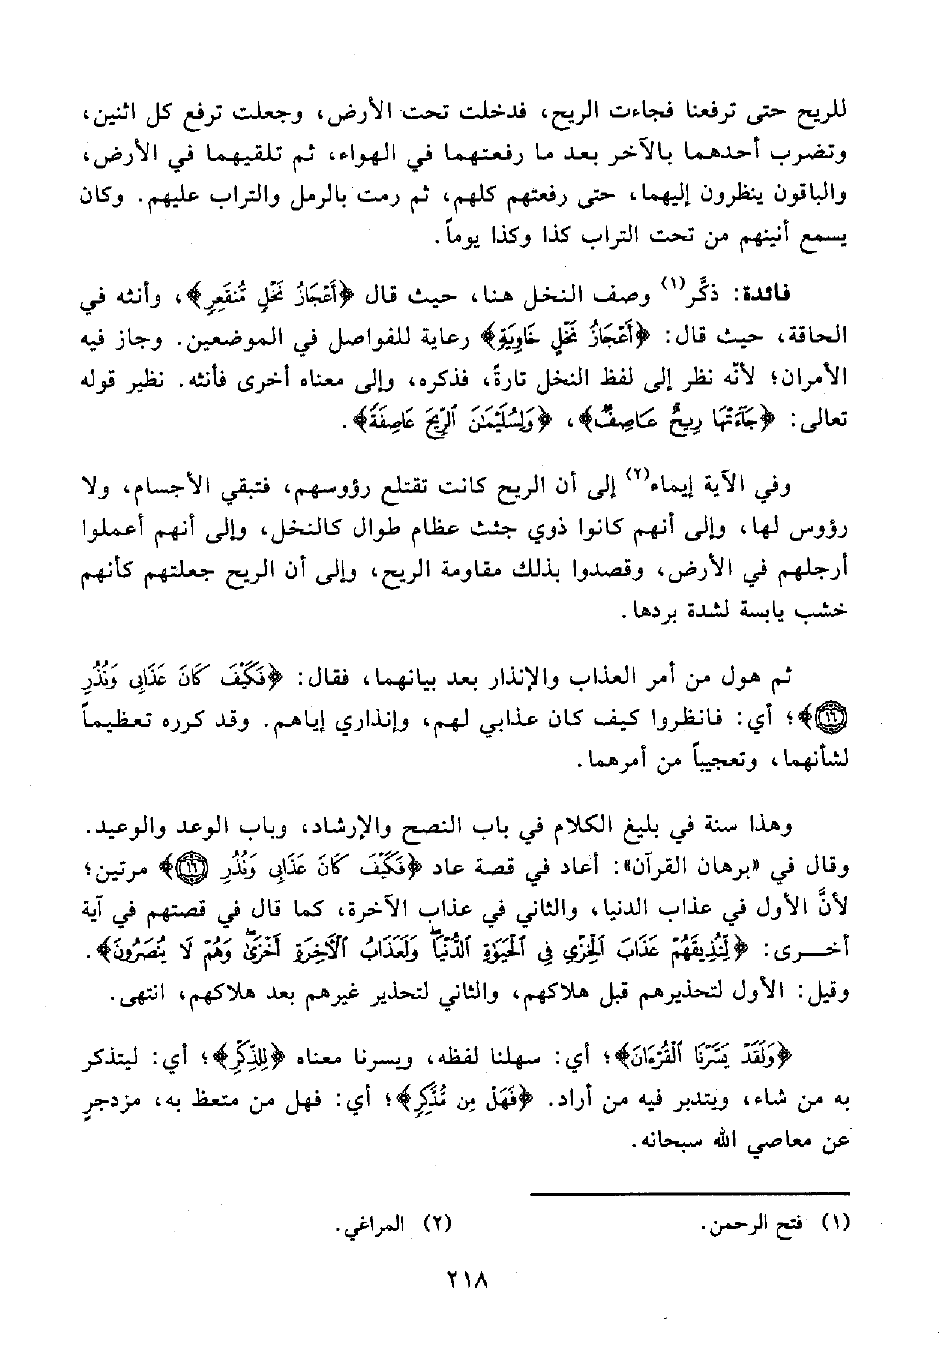 للريح حتى ترفعنا فجاءت الريح، فدخلت تحت الأرض، وجعلت ترفع كل اثنين،
وتضرب أحدهما بالآخر بعد ما رفعتهما في الهواء، ثم تلقيهما في الأرض،
والباقون ينظرون إليهما، حتى رفعتهم كلهم، ثم رمت بالرمل والتراب عليهم. وكان
يسمع أنينهم من تحت التراب كذا وكذا يوماً.
فائدة: ذكَّر(١) وصف النخل هنا، حيث قال ﴿أَعْجَازُ نَخْلٍ مُّنقَعِرٍ﴾، وأنثه في
الحاقة، حيث قال: ﴿أَعْجَازُ نَخْلٍ خَاوِيَةٍ﴾ رعاية للفواصل في الموضعين. وجاز فيه
الأمران؛ لأنّه نظر إلى لفظ النخل تارةً، فذكره، وإلى معناه أخرى فأنثه. نظير قوله
تعالى: ﴿جَآءَتْهَا رِيحٌ عَاصِفٌ﴾، ﴿وَلِسُلَيْمَٰنَ ٱلرِّيحَ عَاصِفَةً﴾.
وفي الآية إيماء(٢) إلى أن الريح كانت تقتلع رؤوسهم، فتبقي الأجسام، ولا
رؤوس لها، وإلى أنهم كانوا ذوي جثث عظام طوال كالنخل، وإلى أنهم أعملوا
أرجلهم في الأرض، وقصدوا بذلك مقاومة الريح، وإلى أن الريح جعلتهم كأنهم
خشب يابسة لشدة بردها.
ثم هول من أمر العذاب والإنذار بعد بيانهما، فقال: ﴿فَكَيْفَ كَانَ عَذَابِى وَنُذُرِ
١٦﴾؛ أي: فانظروا كيف كان عذابي لهم، وإنذاري إياهم. وقد كرره تعظيماً
لشأنهما، وتعجيباً من أمرهما.
وهذا سنة في بليغ الكلام في باب النصح والإرشاد، وباب الوعد والوعيد.
وقال في «برهان القرآن»: أعاد في قصة عاد ﴿فَكَيْفَ كَانَ عَذَابِى وَنُذُرِ ١٦﴾ مرتين؛
لأنَّ الأول في عذاب الدنيا، والثاني في عذاب الآخرة، كما قال في قصتهم في آية
أخـــرى: ﴿لِّنُذِيقَهُمْ عَذَابَ ٱلْخِزْيِ فِى ٱلْحَيَوٰةِ ٱلدُّنْيَا وَلَعَذَابُ ٱلْأَخِرَةِ أَخْزَىٰ وَهُمْ لَا يُنصَرُونَ﴾.
وقيل: الأول لتحذيرهم قبل هلاكهم، والثاني لتحذير غيرهم بعد هلاكهم، انتهى.
﴿وَلَقَدْ يَسَّرْنَا ٱلْقُرْءَانَ﴾؛ أي: سهلنا لفظه، ويسرنا معناه ﴿لِلذِّكْرِ﴾؛ أي: ليتذكر
به من شاء، ويتدبر فيه من أراد. ﴿فَهَلْ مِن مُّدَّكِرٍ﴾؛ أي: فهل من متعظ به، مزدجرٍ
عن معاصي الله سبحانه.
(١) فتح الرحمن. (٢) المراغي.
٢١٨